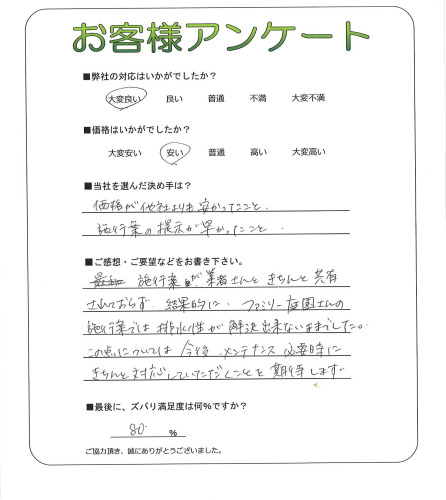 お客様アンケート
■弊社の対応はいかがでしたか？
大変良い 良い 普通 不満 大変不満
■価格はいかがでしたか？
大変安い 安い 普通 高い 大変高い
■当社を選んだ決め手は？
価格が他社よりも安かったこと、
施行案の提示が早かったこと、
■ご感想・ご要望などをお書き下さい。
施行案が業者さんときちんと共有
されておらず、結果的に、ファミリー庭園さんの
施行案では排水性が解決出来ないままでした。
この点については今後、メンテナンス必要時に
きちんと対応していただくことを期待します。
■最後に、ズバリ満足度は何%ですか？
80 %
ご協力頂き、誠にありがとうございました。